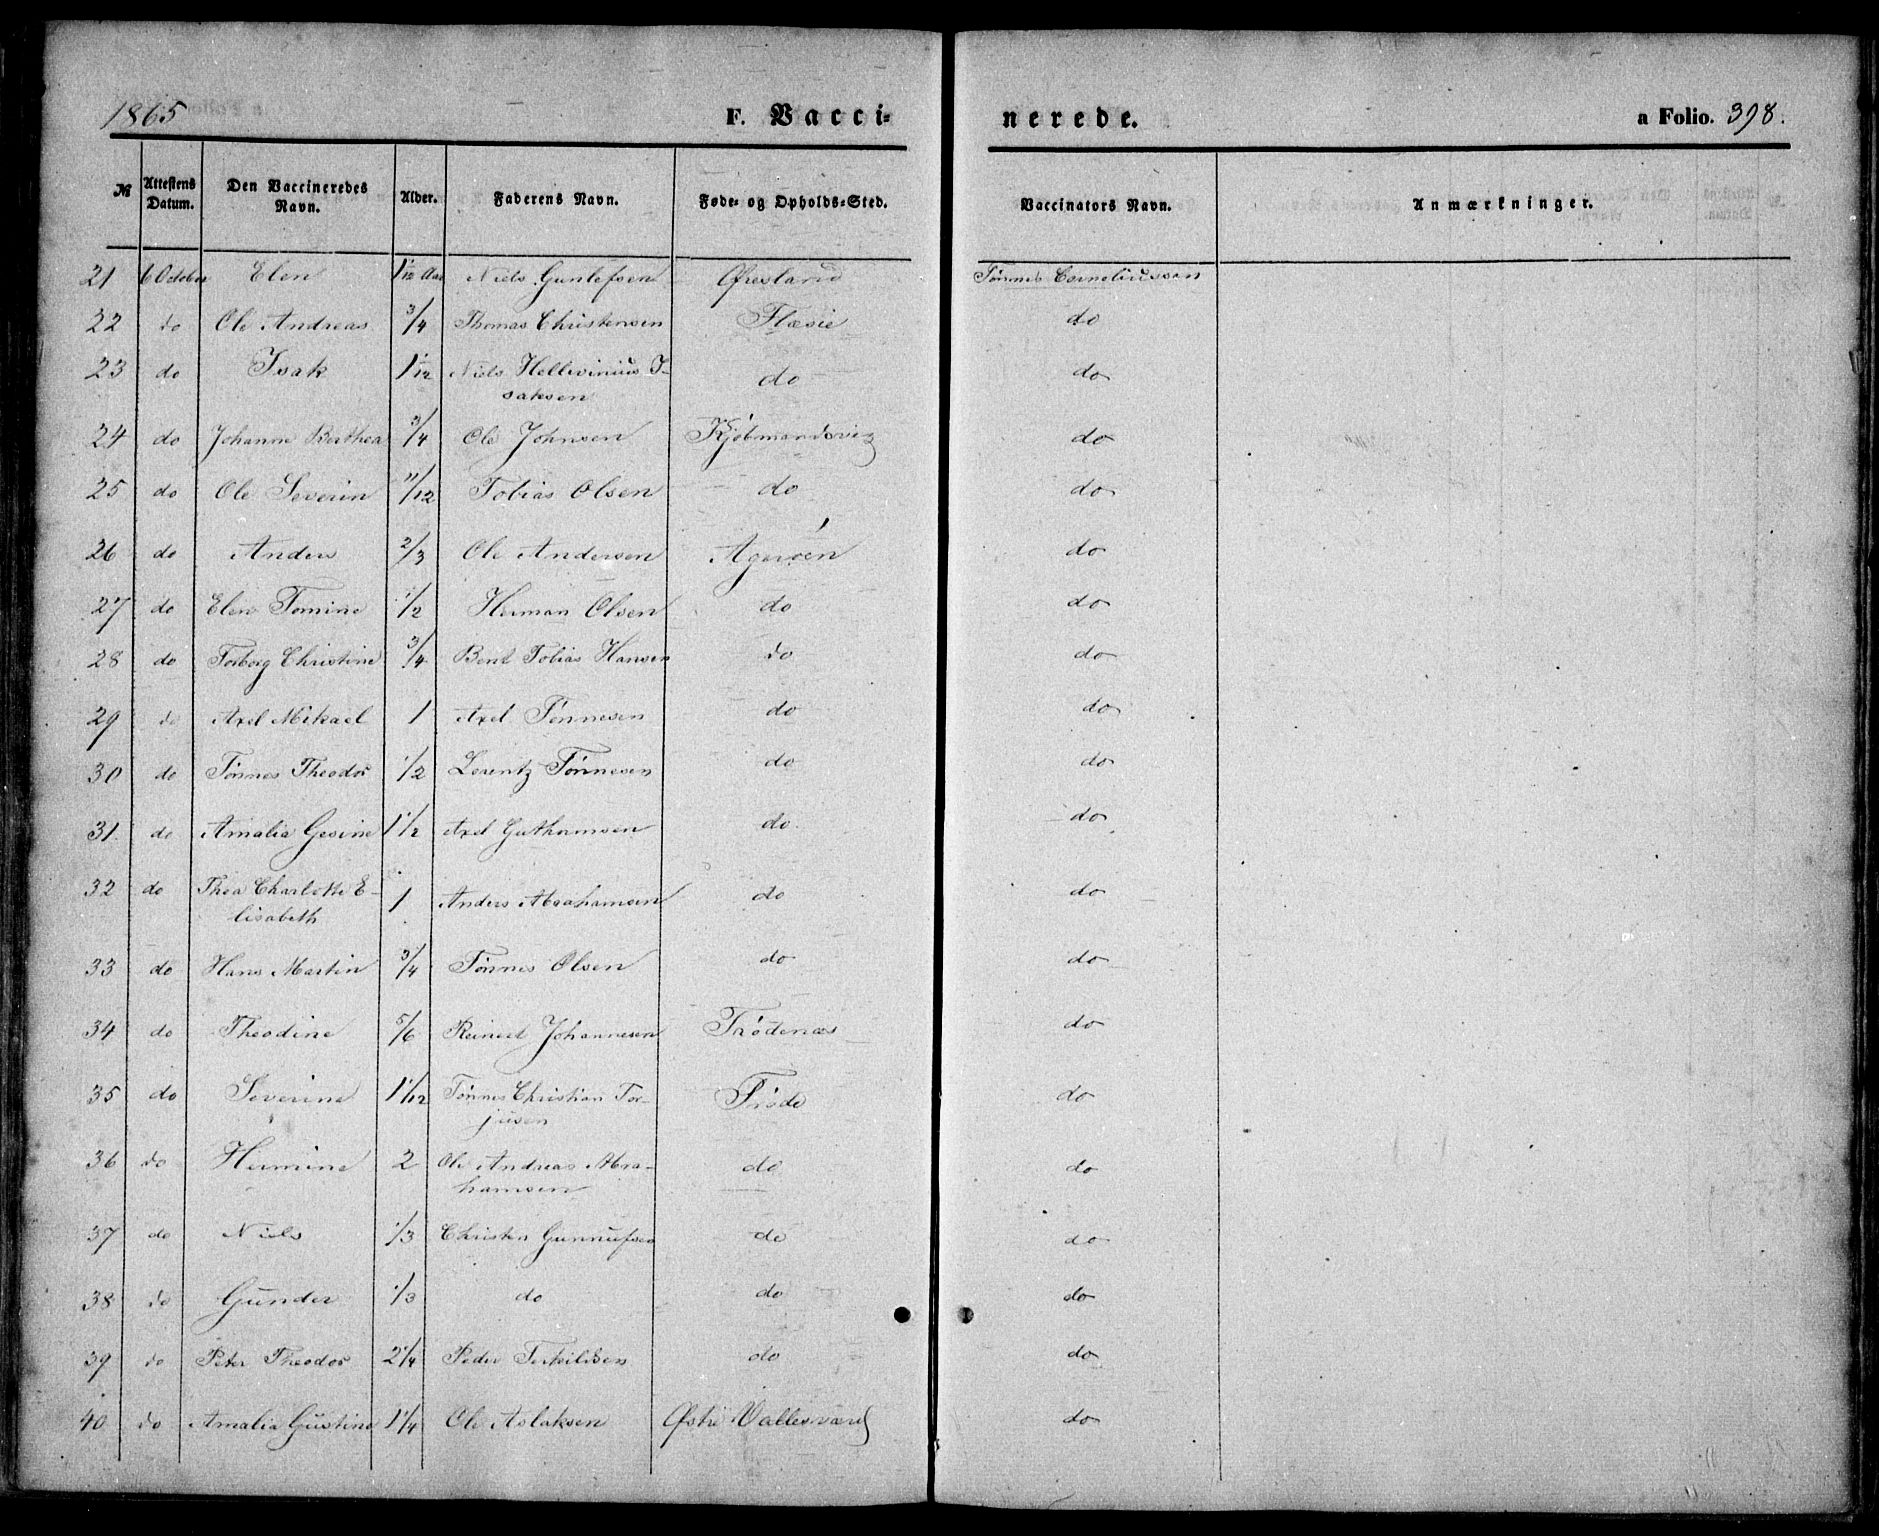 1865 F. Vacci- nerede. a Folio. 398.
№ Attestens Datum. Den Vaccineredes Navn. Alder. Faderens Navn. Føde- og Opholds-Sted. Vaccinators Navn. Anmærkninger.
21 6 October Elen 1 1/12 Aar Niels Gunlefsen Øresland Tønnes Corneliussen
22 do Ole Andreas 3/4 Thomas Christensen Flæsie do
23 do Isak 1 1/12 Niels Hellevinius I- do do
saksen
24 do Johanne Berthea 3/4 Ole Johnsen Kjøbmandsvig do
25 do Ole Severin 11/12 Tobias Olsen do do
26 do Anders 2/3 Ole Andersen Agerøen do
27 do Elen Tomine 1/2 Herman Olsen do do
28 do Torborg Christine 3/4 Bent Tobias Hansen do do
29 do Axel Mikael 1 Axel Tønnesen do do
30 do Tønnes Theodor 1/2 Lorentz Tønnesen do do
31. do Amalia Gesine 1 1/2 Axel Guthormsen do. do
32 do Thea Charlotte E- 1 Anders Abrahamsen do do
lisabeth
33 do Hans Martin 3/4 Tønnes Olsen do do
34 do Theodine 5/6 Reinert Johannesen Trødenæs do
35 do Severine 1 1/12 Tønnes Christian Tor- Trøde do
jusen
36 do Hermine 2 Ole Andreas Abra- do do
hamsen
37 do Niels 1/3 Christen Gunnufsen do do
38 do Gunder 1/3 do do do
39 do Peter Theodor 2 1/4 Peder Terkildsen do do
40 do Amalia Gustine 1 1/4 Ole Aslaksen Østre Vallesværd do